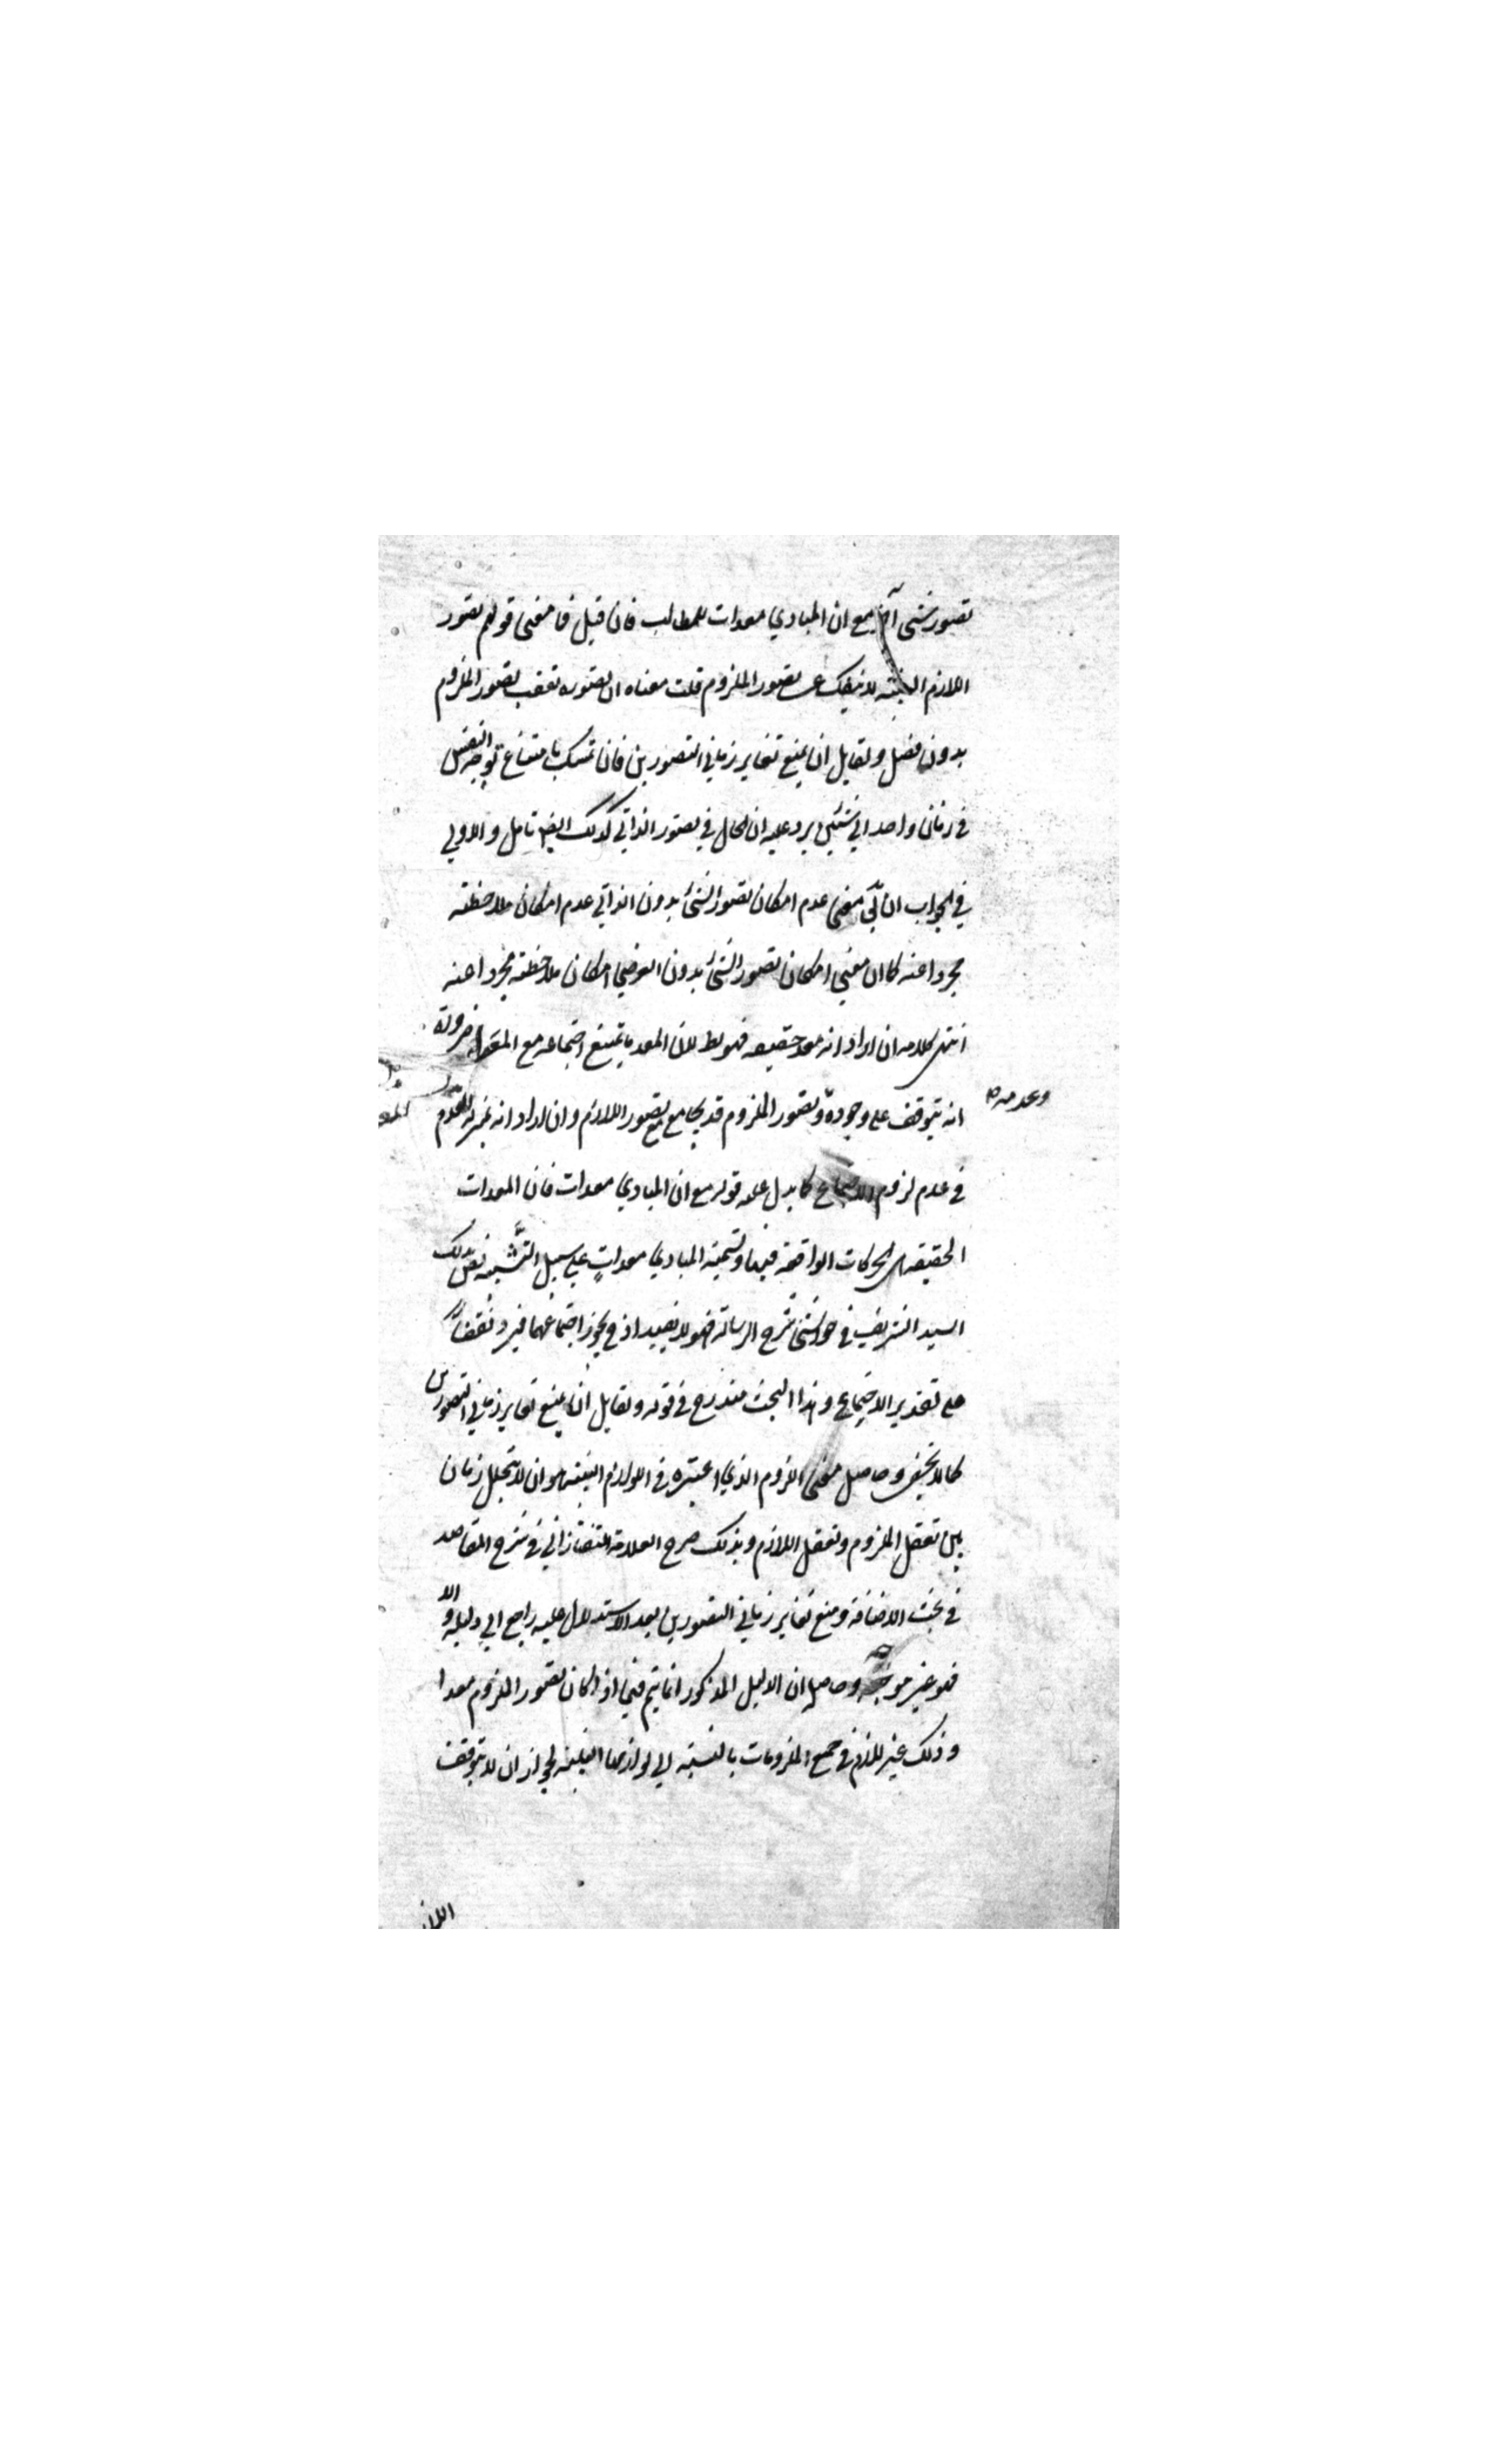 تصور شئ آخر مع ان المبادي معدات للمطالب فان قيل فما معنى قولهم تصور
اللازم البينة لا ينفك عن تصور الملزوم قلت معناه ان تصوره تعقب تصور الملزوم
بدون فصل ولقايل ان يمنع تغاير زماني التصورين فان تمسك بامتناع توجه النفس
في زمان واحد الي شيئين يرد عليه ان الحال في تصور الذاتي كذلك ايضا تامل والاولي
في الجواب ان معنى عدم امكان تصور الشئ بدون الذاتي عدم امكان ملاحظته
مجردا عنه كما ان معني امكان تصور الشئ بدون العرضي امكان ملاحظته مجردا عنه
انتهى كلامه ان اراد انه معد حقيقه فهو بط لان المعد ما يمتنع اجتماعه مع المعد له ضرورة
انه يتوقف على وجوده وتصور الملزوم قد يجامع مع تصور اللازم وان اراد انه بمنزله المعد
وعدمه صح
في عدم لزوم الاجتماع كما يدل عليه قوله مع ان المبادي معدات فان المعدات
الحقيقه هى الحركات الواقعة فيها وتسمية المبادي معدات علي سبيل التشبيه نص بذلك
السيد الشريف في حواشي شرح الرسالة فهو لا يفيد اذ ح يجوز اجتماعهما فيرد نقضا
على تقدير الاجتماع وهذا البحث مندرج في قوله ولقايل ان يمنع تغاير زماني التصورين
كما لا يخفى وحاصل معنى اللزوم الذي اعتبره في اللوازم البينة هو ان لا يتخلل زمان
بين تعقل الملزوم وتعقل اللازم وبذلك صرح العلامة التفتازاني في شرح المقاصد
في بحث الاضافة ومنع تغاير زماني التصورين بعد الاستدلال عليه راجع الي دليله والا
فهو غير موجه وحاصله ان الدليل المذكور انما يتم فيما اذا كان تصور الملزوم معدا
وذلك غير لازم في جميع الملزومات بالنسبة الي لوازمها البينة لجواز ان لا يتوقف